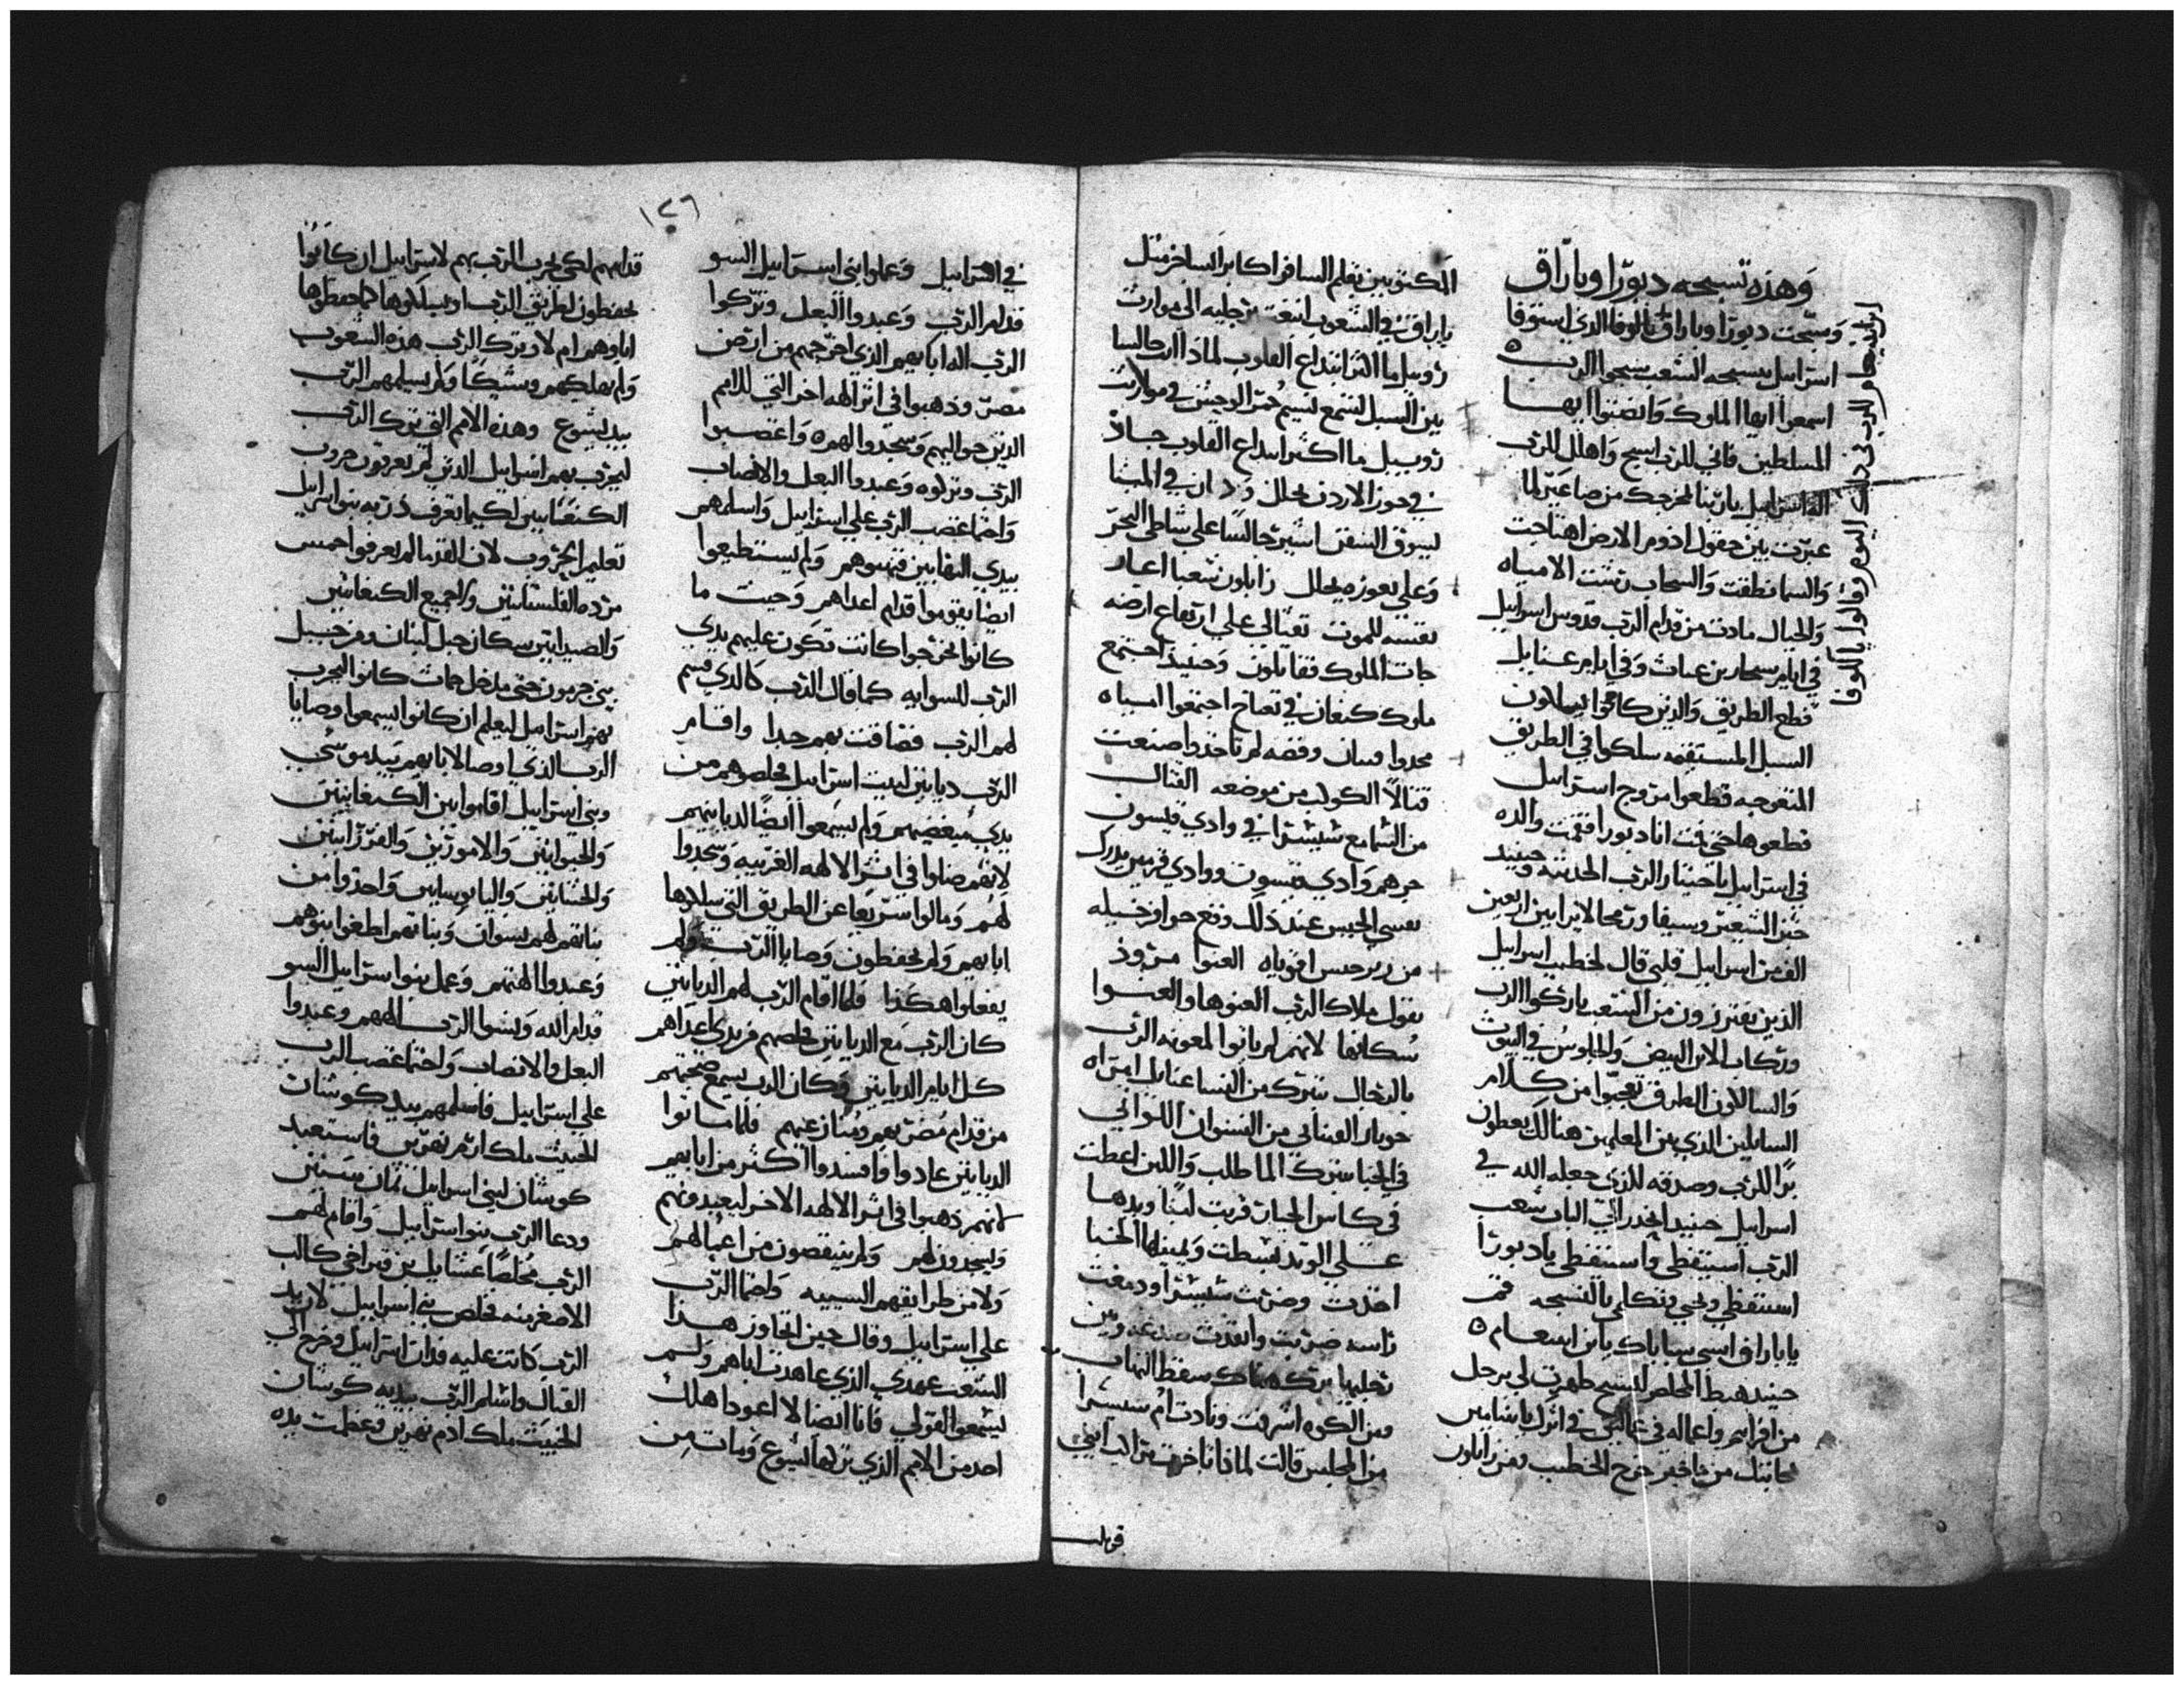 وهذه تسبحه دبورا وباراق
وسبحت دبورا وباراق بالوفا الذي استوفا
اسراييل بتسبحه الشعب سبحوا الرب
اسمعوا ايها الملوك وانصتوا ايها
المسلطين فاني للرب اسبح واهلل للرب
اله اسراييل يا ربنا لمخرجك من صاعير لما
عبرت بين حقول اذوم الارض اهتاجت
والسما نطقت والسحاب رشت الامياه
والجبال مادت من قدام الرب قدوس اسراييل
في ايام سمجار بن عناث وفي ايام عنايل
قطع الطريق والذين كانوا يسلكون
السبل المستقيمه سلكوا في الطريق
المتعوجه قطعوا مروج اسراييل
قطعوها حتى قمت انا دبورا فقمت والده
في اسراييل باختيار الرب الحديثه وحينيد
خبز الشعير وسيفا ورمحا لا يرا بين اربعين
الف من اسراييل قلبي قال لخطيب اسراييل
الذين يفترزون من الشعب باركوا الرب
وركاب الاتن البيض والجلوس في البيوت
والسالكون الطرق تعجبوا من كلام
السايلين الذي بين المعلمين هنالك يعطون
برا للرب وصدقه للذي جعله الله في
اسراييل حينيد انحدر الى الباب شعب
الرب استيقظي واستيقظي يا دبورا
استيقظي ولحني وتكلمي بالتسبحه قم
يا باراق اسبي سباياك يا بن ابينعام
حينيد هبط المخلص ليسبح ظهرت لي برجل
من افرايم واعماله في عماليق في اثرك بنيامين
بمحابتك من ماخير خرج الخطيب ومن زابلون
المكتوبين بقلم السافر اكابر ايساخر مثل
باراق في الشعوب انبعث برجليه الى مواريث
روبيل ما اكثر ابتداع القلوب لماذا انت جالسا
بين السبل لتسمع نسيم حمر الوحش في مواريث
روبيل ما اكثر ابتداع القلوب جلاذ
في حوز الاردن يحلل ودان في المينا
ليسوق السفن اشير جالسا على شاطي البحر
وعلي بعوزه يحلل زابلون شعبا اعيار
نفسه للموت نفتالي علي ارتفاع ارضه
جات الملوك فقاتلون وحينيد اجتمع
ملوك كنعان في تعناخ اجتمعوا المياه
مجدوا وفضه لم تاخذوا صنعت
قتالا الكواكب من موضعه القتال
من السما مع شيشرا في وادي قيسون
جرهم وادي قيسون ووادي قرمين يدرك
نفسي الجيس عند ذلك وقع حوافر خيله
من اقوياه العنوا مروذ
يقول ملاك الرب العنوها والعنوا
سكانها لانهم لم ياتوا لمعونه الرب
بالرجال تتبرك من النسا عنايل امراه
حوبار القيناني من النسوان اللواتي
في الخبا تتبرك الما طلب واللبن اعطت
في كاس الجبابره قربت لبنا ويدها
علي الوتد بسطت ويمينها الخبا
اخذت وضربت شيشرا ودمغت
راسه ضربت وانفذت صدغه وبين
رجليها برك هناك سقط النهاب
ومن الكوه اشرفت ونادت ام شيشرا
من المجلس قالت لماذا تاخرت مراكب ابني
قوله
١٢٦
في اسراييل وعملوا بني اسراييل السو
قدام الرب وعبدوا البعل وتركوا
الرب اله ابايهم الذي اخرجهم من ارض
مصر وذهبوا في اثر الهه اخر التي للامم
الذين حواليهم وسجدوا لهم واغضبوا
الرب وتركوه وعبدوا البعل والانصاب
واحما غضب الرب علي اسراييل واسلمهم
بيدي النهابين فنهبوهم ولم يستطيعوا
ايضا يقوموا قدام اعداهم وحيث ما
كانوا يخرجوا كانت تكون عليهم يدي
الرب للسوايه كما قال الرب كالذي قسم
لهم الرب فضاقت بهم جدا واقام
الرب ديانين لبيت اسراييل فخلصوهم من
يدي مبغضيهم ولم يسمعوا ايضا لديانيهم
لانهم ضلوا في اثر الالهه الغريبه وسجدوا
لهم ومالوا سريعا عن الطريق التي سلكوها
ابايهم ولم يحفظون وصايا الرب ولم
يفعلوا هكذا فلما اقام الرب لهم الديانين
كان الرب مع الديانين فخلصهم من يدي اعداهم
كل ايام الديانين وكان الرب يسمع ضجتهم
من قدام مضربهم ومنازعيهم فلما ماتوا
الديانين عادوا وافسدوا اكثر من ابايهم
لانهم ذهبوا في اثر الالهه الاخر ليعبدونهم
ويسجدون لهم ولم ينتقصون من اعمالهم
ولا من طرايقهم السييه واحما الرب
علي اسراييل وقال حين تجاوز هذا
الشعب عهدي الذي عاهدت اباهم ولم
يسمعوا لقولي فانا ايضا لا اعود اهلك
احد من الامم الذي تركها ايشوع ومات من
قدامهم لكي يجرب الرب بهم لاسراييل ان كانوا
يحفظون لطريق الرب او يسلكوها كما حفظوها
اباوهم ام لا وترك الرب هذه الشعوب
ولم يهلكهم وشيكا ولم يسلمهم الرب
بيد يشوع وهذه الامم التي ترك الرب
ليجرب بهم اسراييل الذين لم يعرفون حروب
الكنعنانيين لكيما تعرف ذريه بنو اسراييل
تعليم الحروب لان القدما لم يعرفوا خمس
مرده الفلسطانيين والجميع الكنعانيين
والصيدانيين سكان جبل لبنان ومن جبيل
بني حرمون حتى مدخل حماث كانوا ليجرب
بهم اسراييل ليعلم ان كانوا يسمعوا وصايا
الرب الذي اوصا لابايهم بيد موسي
وبني اسراييل اقاموا بين الكنعانيين
والحيوانيين والامورين والفرزانيين
والحثانيين واليابوسانيين واخذوا من
بناتهم لهم نسوان وبناتهم اعطوا لبنوهم
وعبدوا الهتهم وعمل بنوا اسراييل السو
قدام الله ونسوا الرب الههم وعبدوا
البعل والانصاب واحتما غضب الرب
علي اسراييل فاسلمهم بيد كوشان
الخبيث ملك ارم نهرين فاستعبد
كوشان لبني اسراييل ثمان سنين
ودعا الرب بنو اسراييل واقام لهم
الرب مخلصا عشنايل بن قنز اخي كالب
الاصغر منه فخلص بني اسراييل لان يد
الرب كانت عليه فدان اسراييل وخرج الى
القتال واسلم الرب بيديه كوشان
الخبيث ملك ادم نهرين وعظمت يده